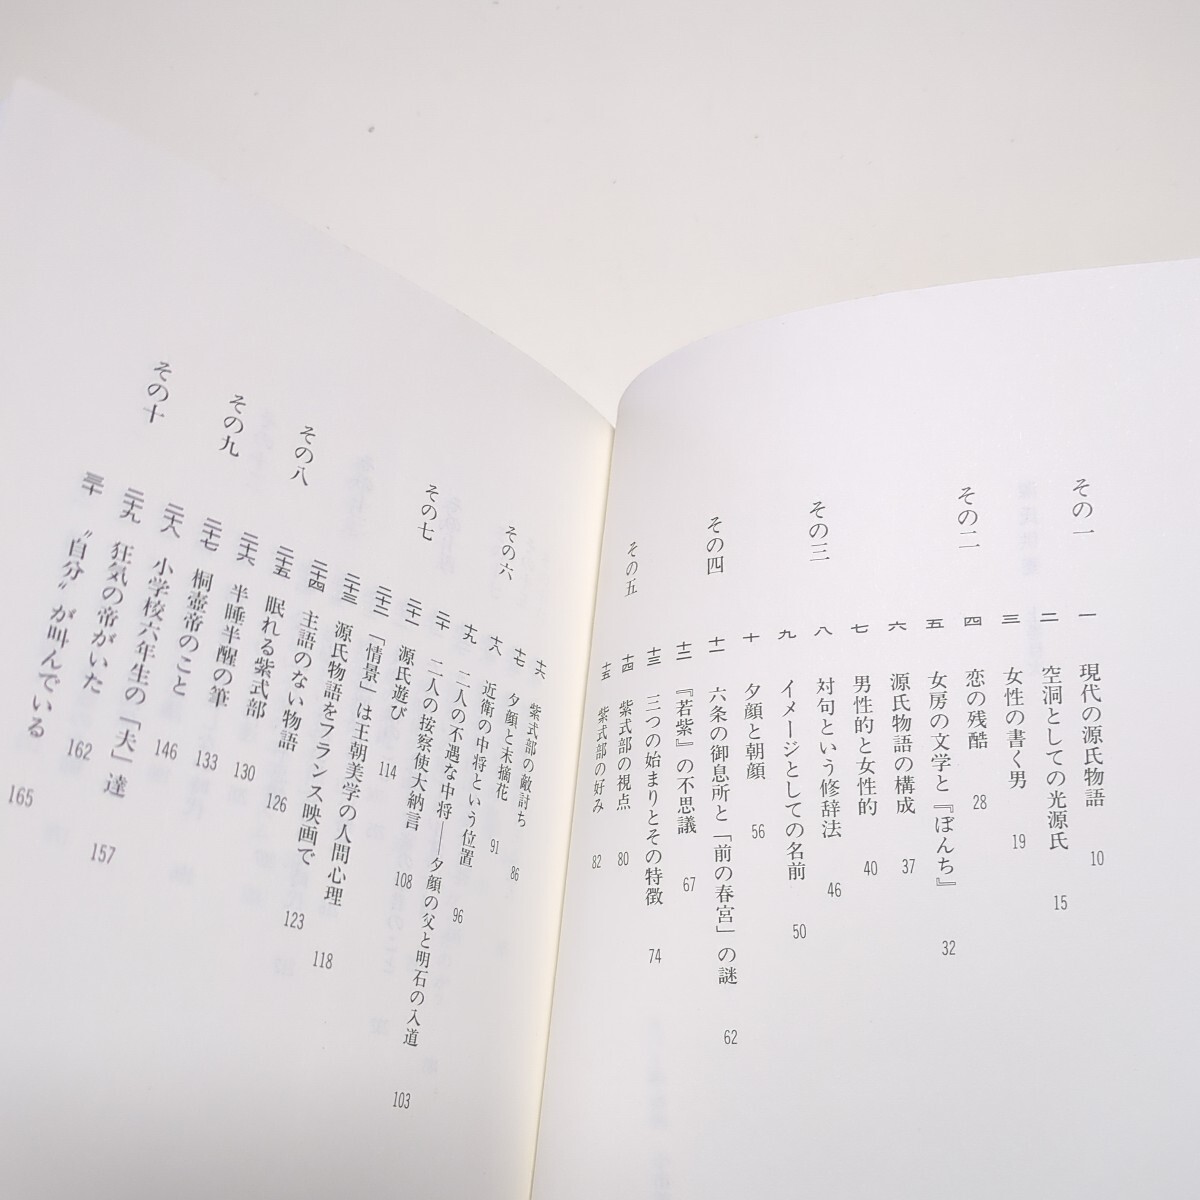 その一
一 現代の源氏物語 10
二 空洞としての光源氏 15
三 女性の書く男 19
その二
四 恋の残酷 28
五 女房の文学と『ぼんち』 32
六 源氏物語の構成 37
七 男性的と女性的 40
その三
八 対句という修辞法 46
九 イメージとしての名前 50
十 夕顔と朝顔 56
その四
十一 六条の御息所と「前の春宮」の謎 62
十二 『若紫』の不思議 67
十三 三つの始まりとその特徴 74
その五
十四 紫式部の視点 80
十五 紫式部の好み 82
十六 紫式部の敵討ち 86
十七 夕顔と末摘花 91
その六
十八 近衛の中将という位置 96
十九 二人の不遇な中将──夕顔の父と明石の入道 103
二十 二人の按察使大納言 108
その七
二十一 源氏遊び 114
二十二 「情景」は王朝美学の人間心理 118
二十三 源氏物語をフランス映画で 123
二十四 主語のない物語 126
その八
二十五 眠れる紫式部 130
二十六 半睡半醒の筆 133
その九
二十七 桐壺帝のこと 146
二十八 小学校六年生の「夫」達 157
その十
二十九 狂気の帝がいた 162
三十 〝自分〟が叫んでいる 165